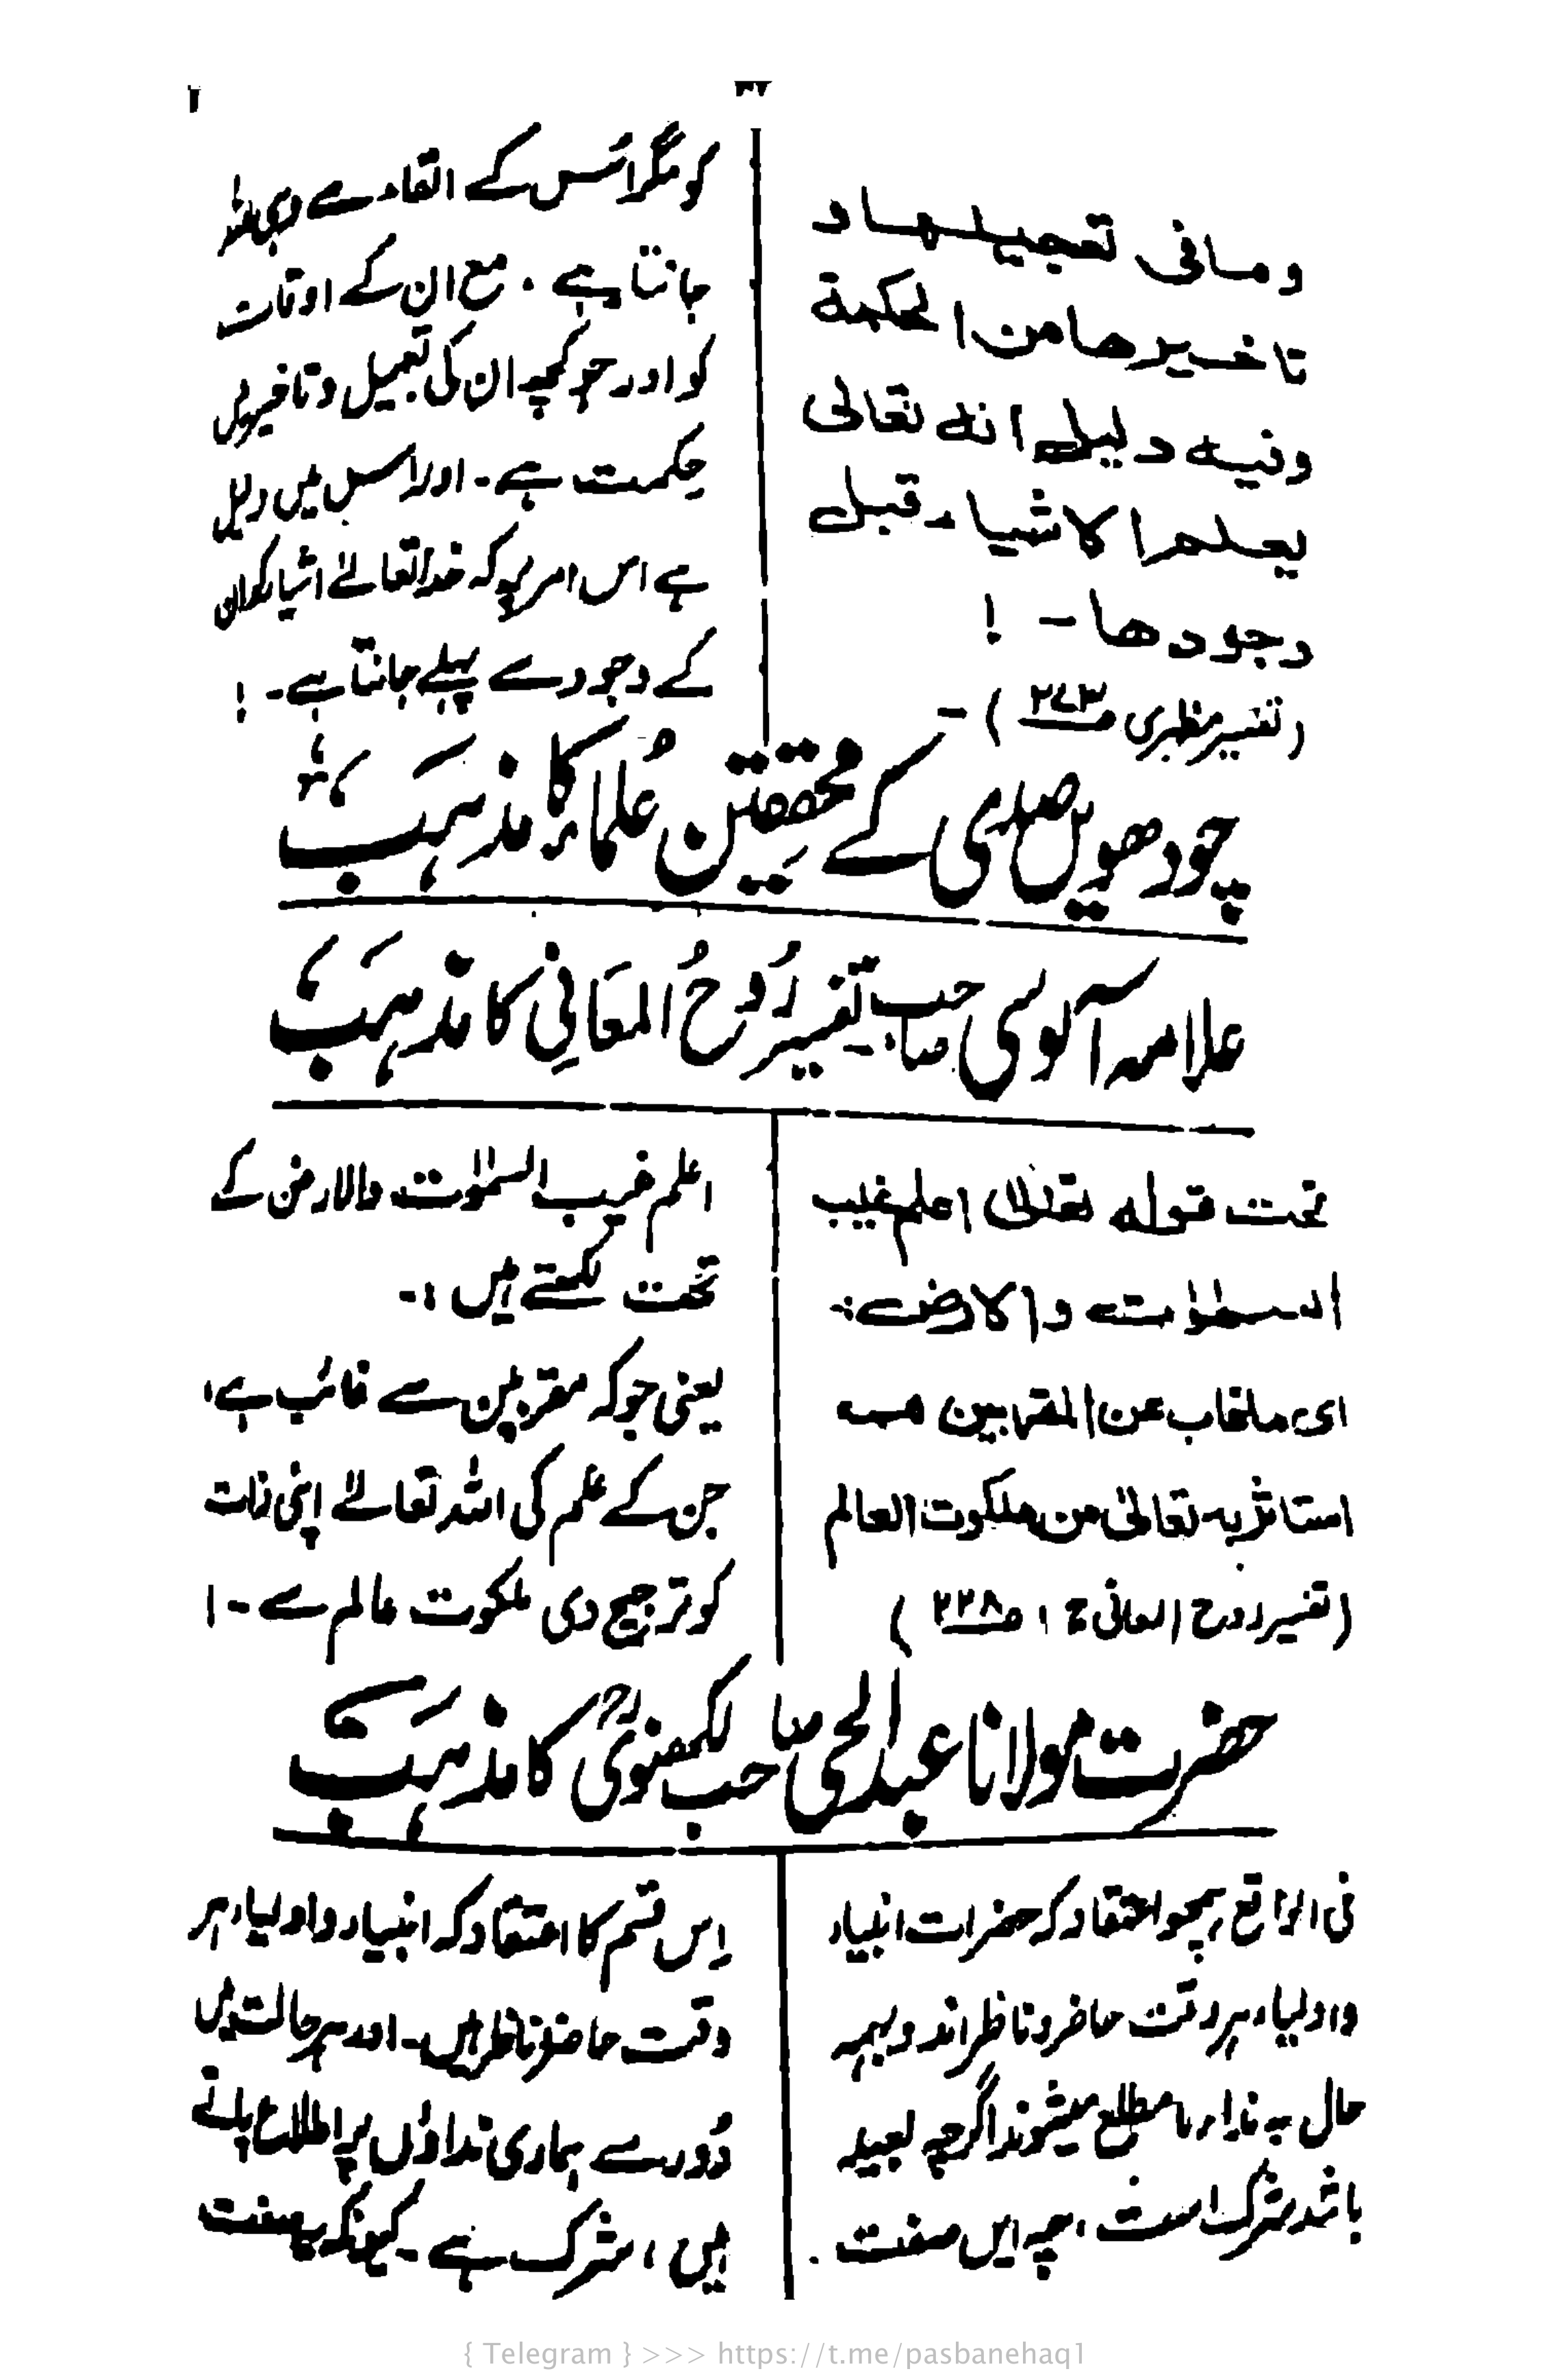 ومافی تعجیلها و
تاخیرها من الحکمة
وفیه دلیل انه تعالی
یعلم الاشیاء قبل
وجودها - !
(تفسیر مظہری ص۲۷۳) -
کو مگر اس کے القاء سے وہی
جانتا ہے . مع ان کے اوقات
کو اور جو کچھ ان کی تعجیل و تاخیر میں
حکمت ہے - اور اس میں دلیل
ہے اس امر پر کہ خدا تعالےٰ اشیاء کو ان
کے وجود سے پہلے جانتا ہے - !
چودھویں صدی کے محققین علماء کا مذہب
علامہ آلوسی صاحب تفسیر رُوحُ المعَانِی کا مذہب
تحت قوله تعالیٰ اعلم غیب
السمٰوٰت والارض :-
ای ما غاب عن المقربین مما
استاثر به تعالیٰ من ملکوت العالم
(تفسیر روح المعانی ج ۱ ص۲۲۸)
اعلم غیب السمٰوٰت والارض کے
تحت لکھتے ہیں :-
یعنی جو کہ مقربین سے غائب ہے،
جن کے علم کی اللہ تعالےٰ اپنی ذات
کو ترجیح دی ملکوت عالم سے - !
حضرت مولانا عبدالحی صاحب لکھنویؒ کا مذہب
فی الواقع ہمچو اعتقاد کہ حضرات انبیاء
و اولیاء ہر وقت حاضر و ناظر اند و بہمہ
حال بہ ندا ما مطلع میشوند اگرچہ بعید
باشد شرک است ، چہ ایں صفت
اِس قسم کا اعتقاد کہ انبیاء و اولیاء ہر
وقت حاضر و ناظر ہیں - اور ہر حالت میں
دُور سے ہماری نداؤں پر اطلاع پاتے
ہیں ، شرک ہے - کیونکہ یہ صفت
{ Telegram } >>> https://t.me/pasbanehaq1